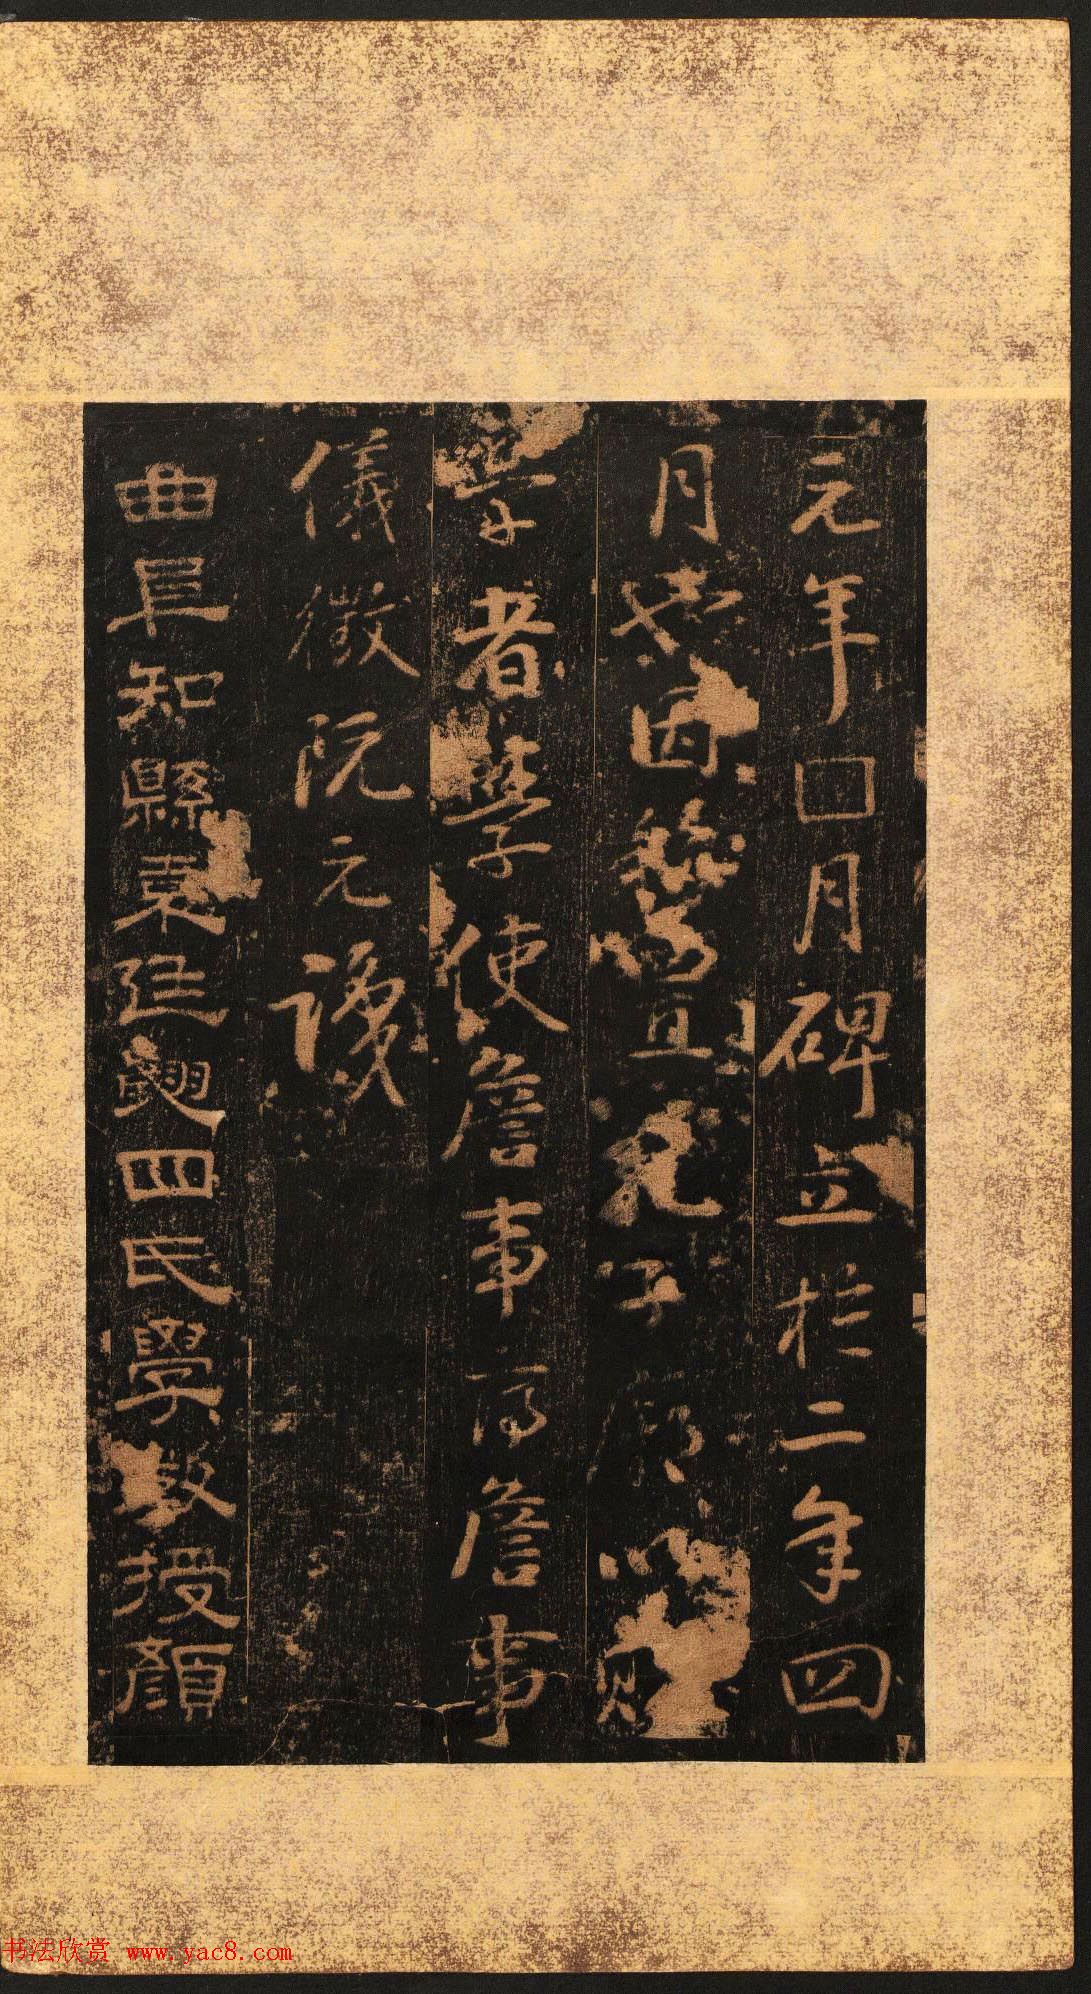 元年囗月碑立於二年四
月也因並置孔子廟以貽
學者學使詹事前詹事
儀徵阮元識
曲阜知縣東廷四氏學教授顏
书法欣赏 www.yac8.com